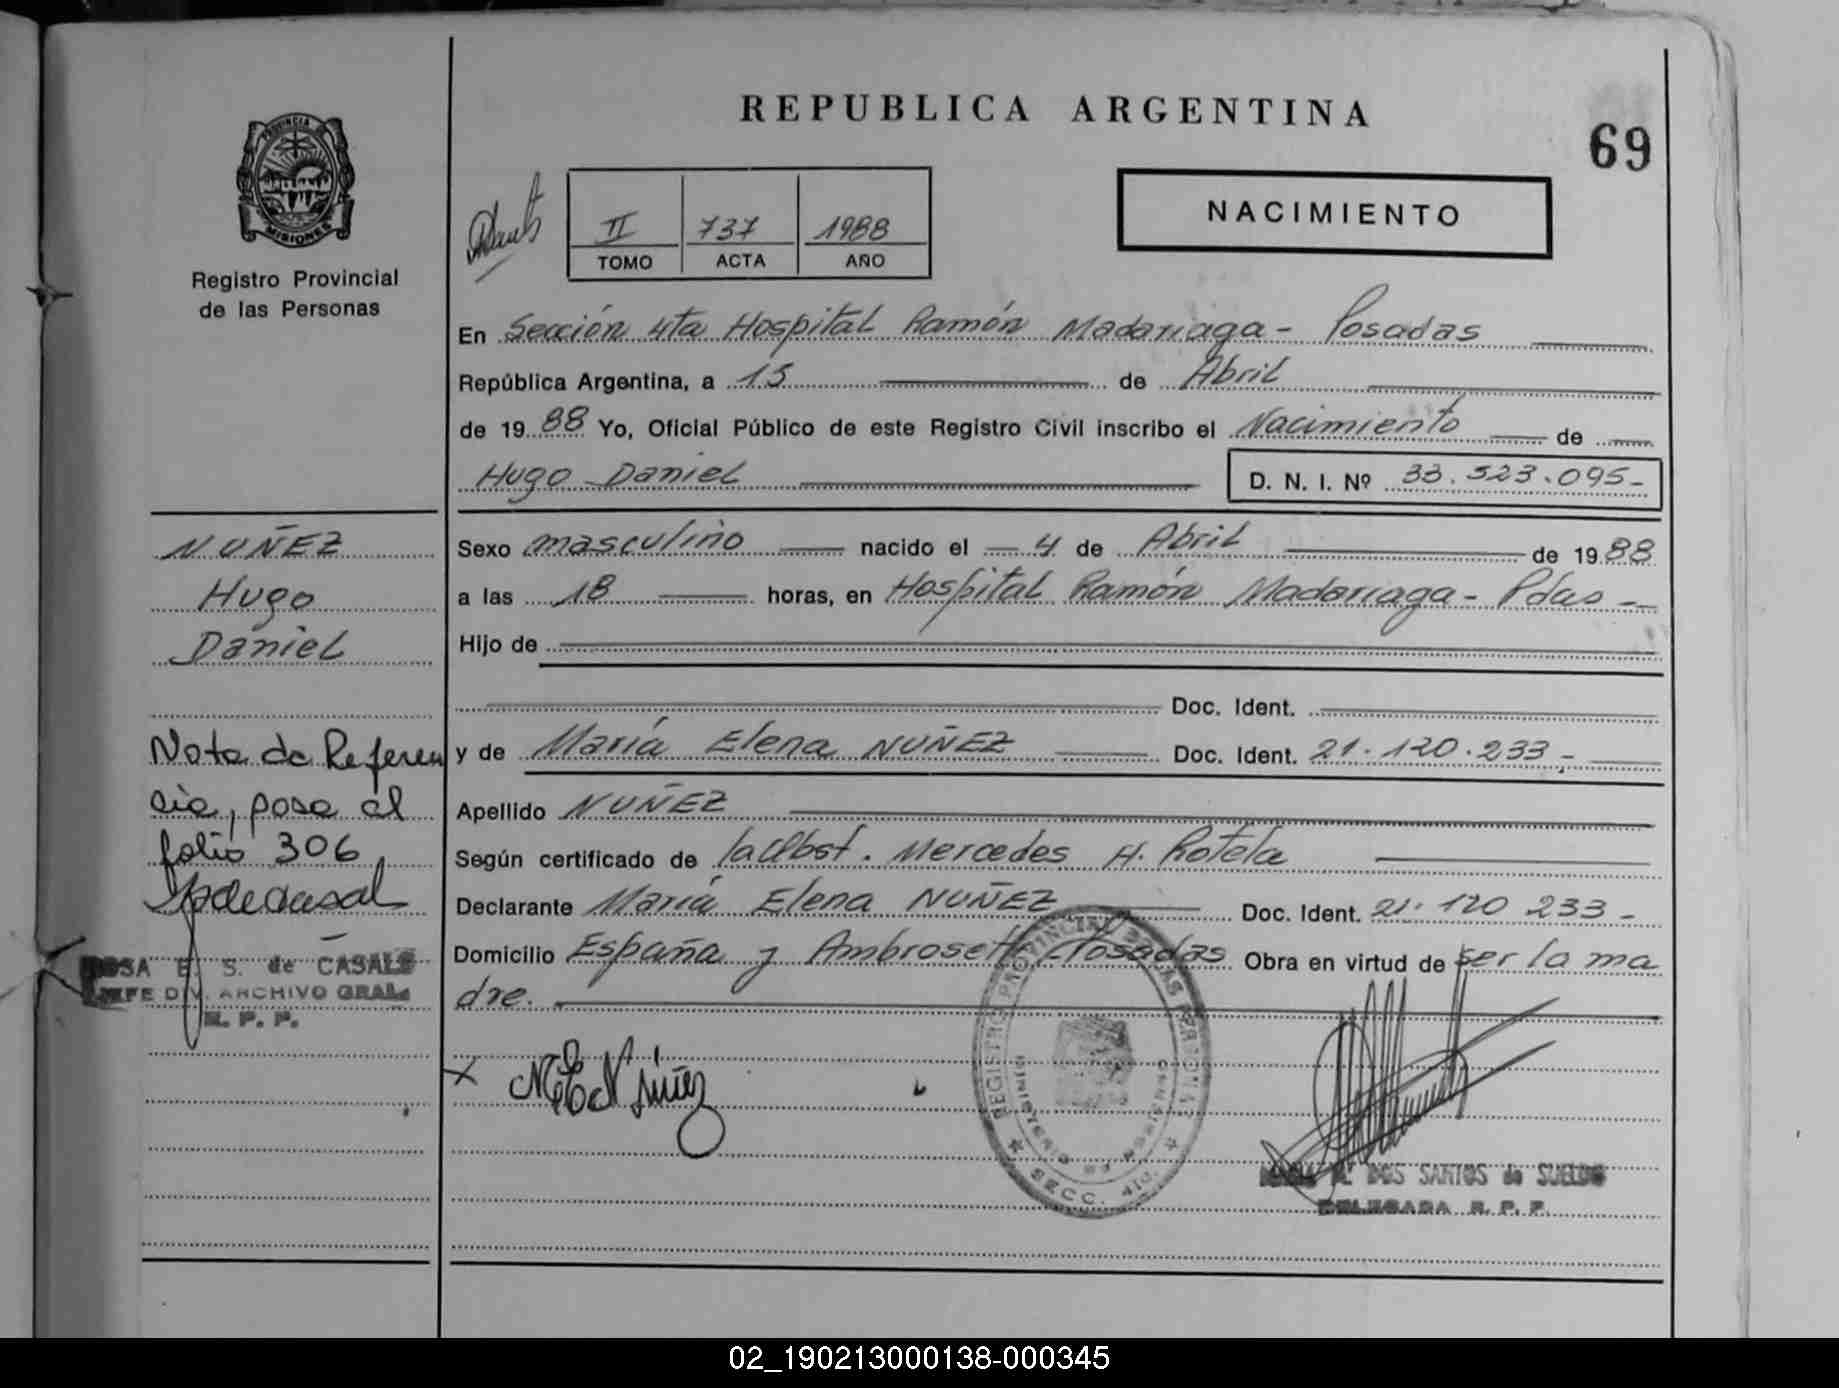 REPUBLICA ARGENTINA
69
PROVINCIA DE
MISIONES
Registro Provincial
de las Personas
II 737 1988
TOMO ACTA AÑO
NACIMIENTO
En Sección 4ta Hospital Ramón Madariaga - Posadas
República Argentina, a 15 de Abril
de 1988 Yo, Oficial Público de este Registro Civil inscribo el Nacimiento de
Hugo Daniel D. N. I. Nº 33.523.095-
Sexo masculino nacido el 4 de Abril de 1988
a las 18 horas, en Hospital Ramón Madariaga - Pdas -
Hijo de
Doc. Ident.
y de María Elena NUÑEZ Doc. Ident. 21.120.233-
Apellido NUÑEZ
Según certificado de la Obst. Mercedes H. Rotela
Declarante María Elena NUÑEZ Doc. Ident. 21.120 233-
Domicilio España y Ambrosetti - Posadas Obra en virtud de ser la ma
dre.
NUÑEZ
Hugo
Daniel
Nota de Referen
cia, pasa al
folio 306
ROSA E. S. de CASALS
JEFE DIV. ARCHIVO GRAL.
R. P. P.
M E Nuñez
REGISTRO PROVINCIAL DE LAS PERSONAS
MINISTERIO DE GOBIERNO
SECC. 4ta.
DOS SANTOS de SUELDO
DELEGADA R. P. P.
02_190213000138-000345